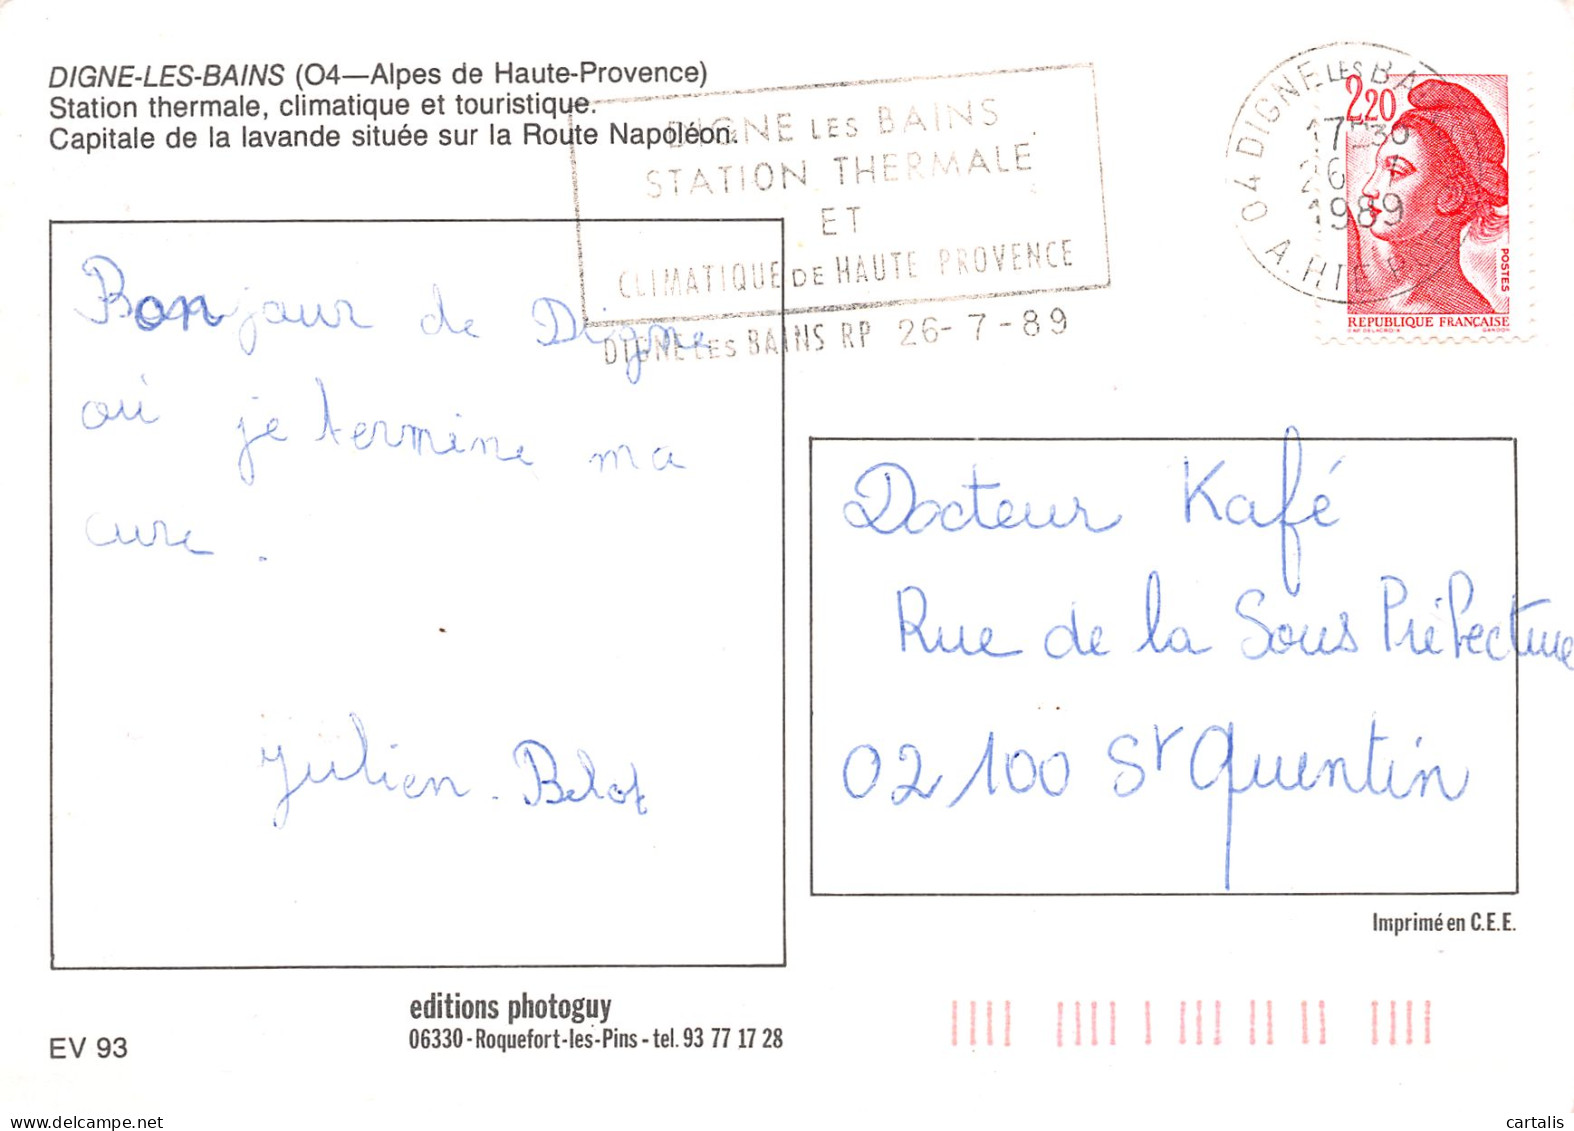 DIGNE-LES-BAINS (04—Alpes de Haute-Provence)
Station thermale, climatique et touristique.
Capitale de la lavande située sur la Route Napoléon.
DIGNE LES BAINS
STATION THERMALE
ET
CLIMATIQUE DE HAUTE PROVENCE
DIGNE LES BAINS RP 26-7-89
04 DIGNE LES BA
17H30
26-7
1989
A. HTE P
2,20
POSTES
REPUBLIQUE FRANÇAISE
Bonjour de Digne
où je termine ma
cure.
Julien. Belot
Docteur Kafé
Rue de la Sous Préfecture
02100 St Quentin
Imprimé en C.E.E.
editions photoguy
06330-Roquefort-les-Pins-tel. 93 77 17 28
EV 93
cartalis
www.delcampe.net